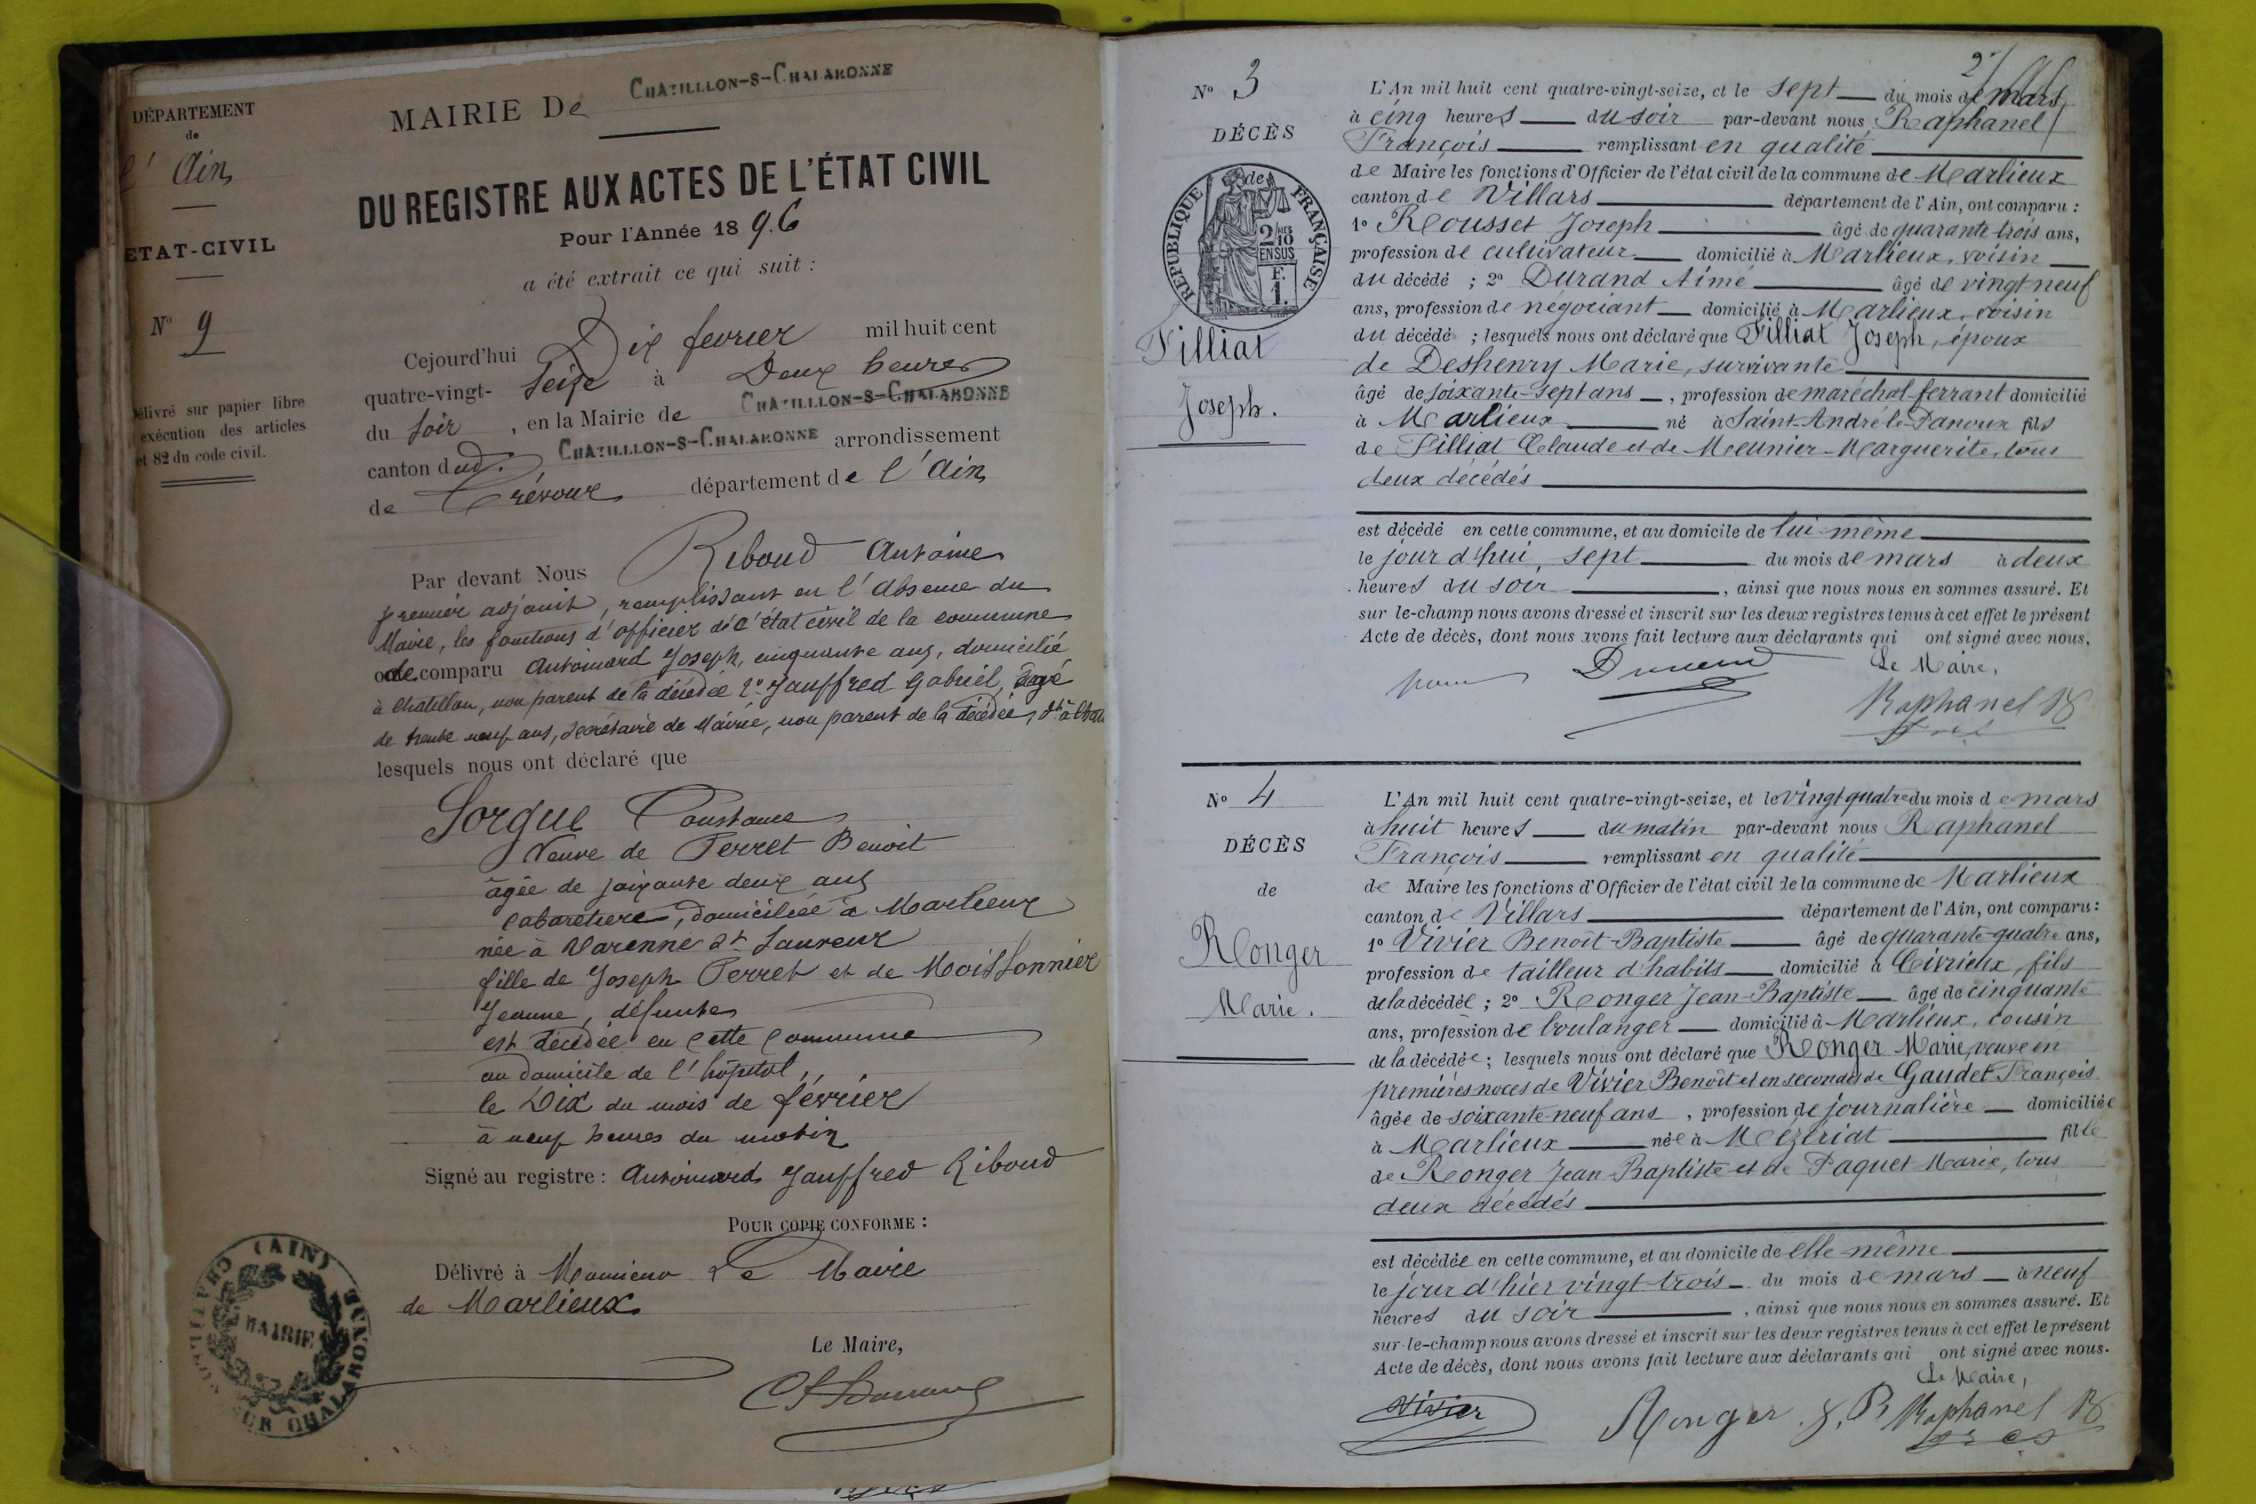 DÉPARTEMENT
de
l'Ain
ETAT-CIVIL
N° 9
Délivré sur papier libre
exécution des articles
et 82 du code civil.
MAIRIE De CHATILLLON-S-CHALARONNE
DU REGISTRE AUX ACTES DE L'ÉTAT CIVIL
Pour l'Année 1896
a été extrait ce qui suit :
Cejourd'hui Dix fevrier mil huit cent
quatre-vingt- Seize à Deux heures
du soir, en la Mairie de CHATILLLON-S-CHALARONNE
canton dud. CHATILLLON-S-CHALARONNE arrondissement
de Trévoux département de l'Ain
Par devant Nous Riboud Antoine
premier adjoint, remplissant en l'absence du
Maire, les fonctions d'officier de l'état civil de la commune
comparu Antoinard Joseph, cinquante ans, domicilié
à Chatillon, non parent de la décédée 2° Jauffred Gabriel, âgé
de trente neuf ans, secrétaire de Mairie, non parent de la décédée, dt à Chat
lesquels nous ont déclaré que
Sorgue Constance
Veuve de Perret Benoit
âgée de soixante deux ans
cabaretiere, domiciliée à Marlieux
née à Varenne St Sauveur
fille de Joseph Perret et de Moissonnier
Jeanne, défunts
est décédée en cette commune
au domicile de l'hôpital,
le Dix du mois de février
à neuf heures du matin
Signé au registre : Antoinard Jauffred Riboud
POUR COPIE CONFORME :
Délivré à Monsieur Le Maire
de Marlieux
Le Maire,
(AIN)
MAIRIE
2
N° 3
DÉCÈS
RÉPUBLIQUE FRANÇAISE
2/10 EN SUS
F. 1.
Filliat
Joseph.
L'An mil huit cent quatre-vingt-seize, et le sept du mois de mars
à cinq heures du soir par-devant nous Raphanel
François remplissant en qualité
de Maire les fonctions d'Officier de l'état civil de la commune de Marlieux
canton de Villars département de l'Ain, ont comparu :
1° Rousset Joseph âgé de quarante-trois ans,
profession de cultivateur domicilié à Marlieux, voisin
du décédé ; 2° Durand Aimé âgé de vingt neuf
ans, profession de négociant domicilié à Marlieux, voisin
du décédé ; lesquels nous ont déclaré que Filliat Joseph, époux
de Deshenry Marie, survivante
âgé de soixante-sept ans, profession de maréchal-ferrant domicilié
à Marlieux né à Saint-André-le-Panoux fils
de Filliat Claude et de Meunier Marguerite, tous
deux décédés
est décédé en cette commune, et au domicile de lui-même
le jour d'hui, sept du mois de mars à deux
heures du soir, ainsi que nous nous en sommes assuré. Et
sur le-champ nous avons dressé et inscrit sur les deux registres tenus à cet effet le présent
Acte de décès, dont nous avons fait lecture aux déclarants qui ont signé avec nous.
Durand Le Maire,
Raphanel
N° 4
DÉCÈS
de
Ronger
Marie.
L'An mil huit cent quatre-vingt-seize, et le vingt quatre du mois de mars
à huit heures du matin par-devant nous Raphanel
François remplissant en qualité
de Maire les fonctions d'Officier de l'état civil de la commune de Marlieux
canton de Villars département de l'Ain, ont comparu :
1° Vivier Benoît-Baptiste âgé de quarante-quatre ans,
profession de tailleur d'habits domicilié à Civrieux, fils
de la décédée ; 2° Ronger Jean-Baptiste âgé de cinquante
ans, profession de boulanger domicilié à Marlieux, cousin
de la décédée ; lesquels nous ont déclaré que Ronger Marie, veuve en
premières noces de Vivier Benoît et en secondes de Gaudet François
âgée de soixante-neuf ans, profession de journalière domiciliée
à Marlieux née à Mézériat fille
de Ronger Jean-Baptiste et de Paquet Marie, tous
deux décédés
est décédée en cette commune, et au domicile de elle-même
le jour d'hier vingt-trois du mois de mars à neuf
heures du soir, ainsi que nous nous en sommes assuré. Et
sur-le-champ nous avons dressé et inscrit sur les deux registres tenus à cet effet le présent
Acte de décès, dont nous avons fait lecture aux déclarants qui ont signé avec nous.
Le Maire,
Vivier Ronger Raphanel